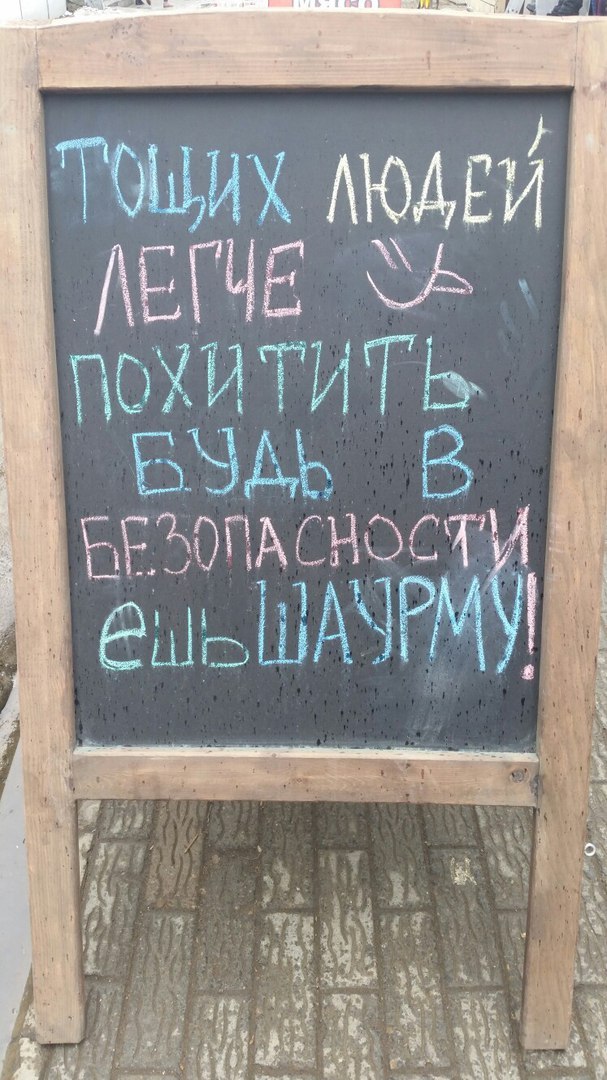 МЯСО
ТОЩИХ ЛЮДЕЙ
ЛЕГЧЕ
ПОХИТИТЬ
БУДЬ В
БЕЗОПАСНОСТИ
ешь ШАУРМУ!